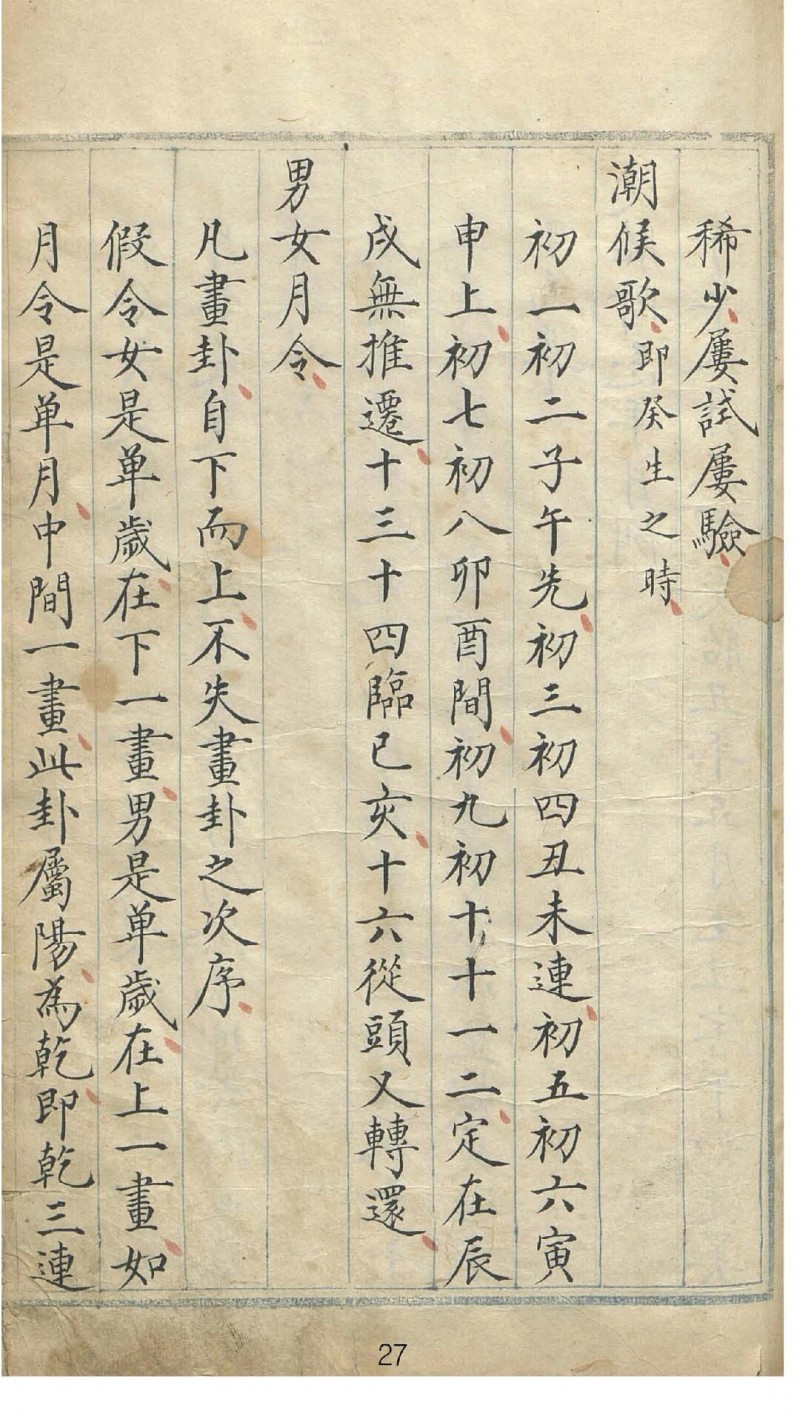 稀少屢試屢驗
潮候歌即癸生之時
初一初二子午先初三初四丑未連初五初六寅
申上初七初八卯酉間初九初十十一二定在辰
戌無推遷十三十四臨巳亥十六從頭又轉還
男女月令
凡畫卦自下而上不失畫卦之次序
假令女是单歲在下一畫男是单歲在上一畫如
月令是单月中間一畫此卦屬陽為乾即乾三連
27